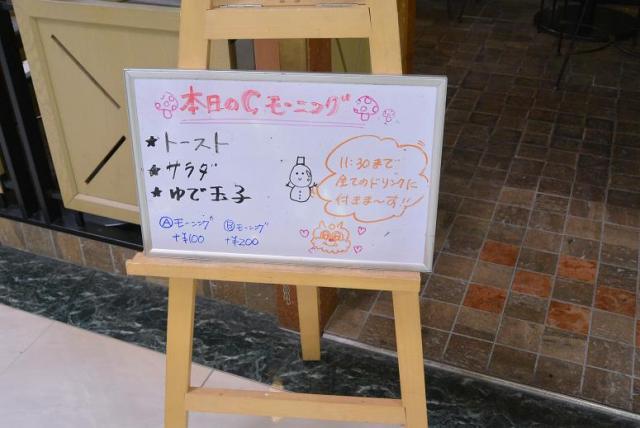 本日のCモーニング
★トースト
★サラダ
★ゆで玉子
11:30まで
全てのドリンクに
付きま〜す!!
Ⓐモーニング
+¥100
Ⓑモーニング
+¥200